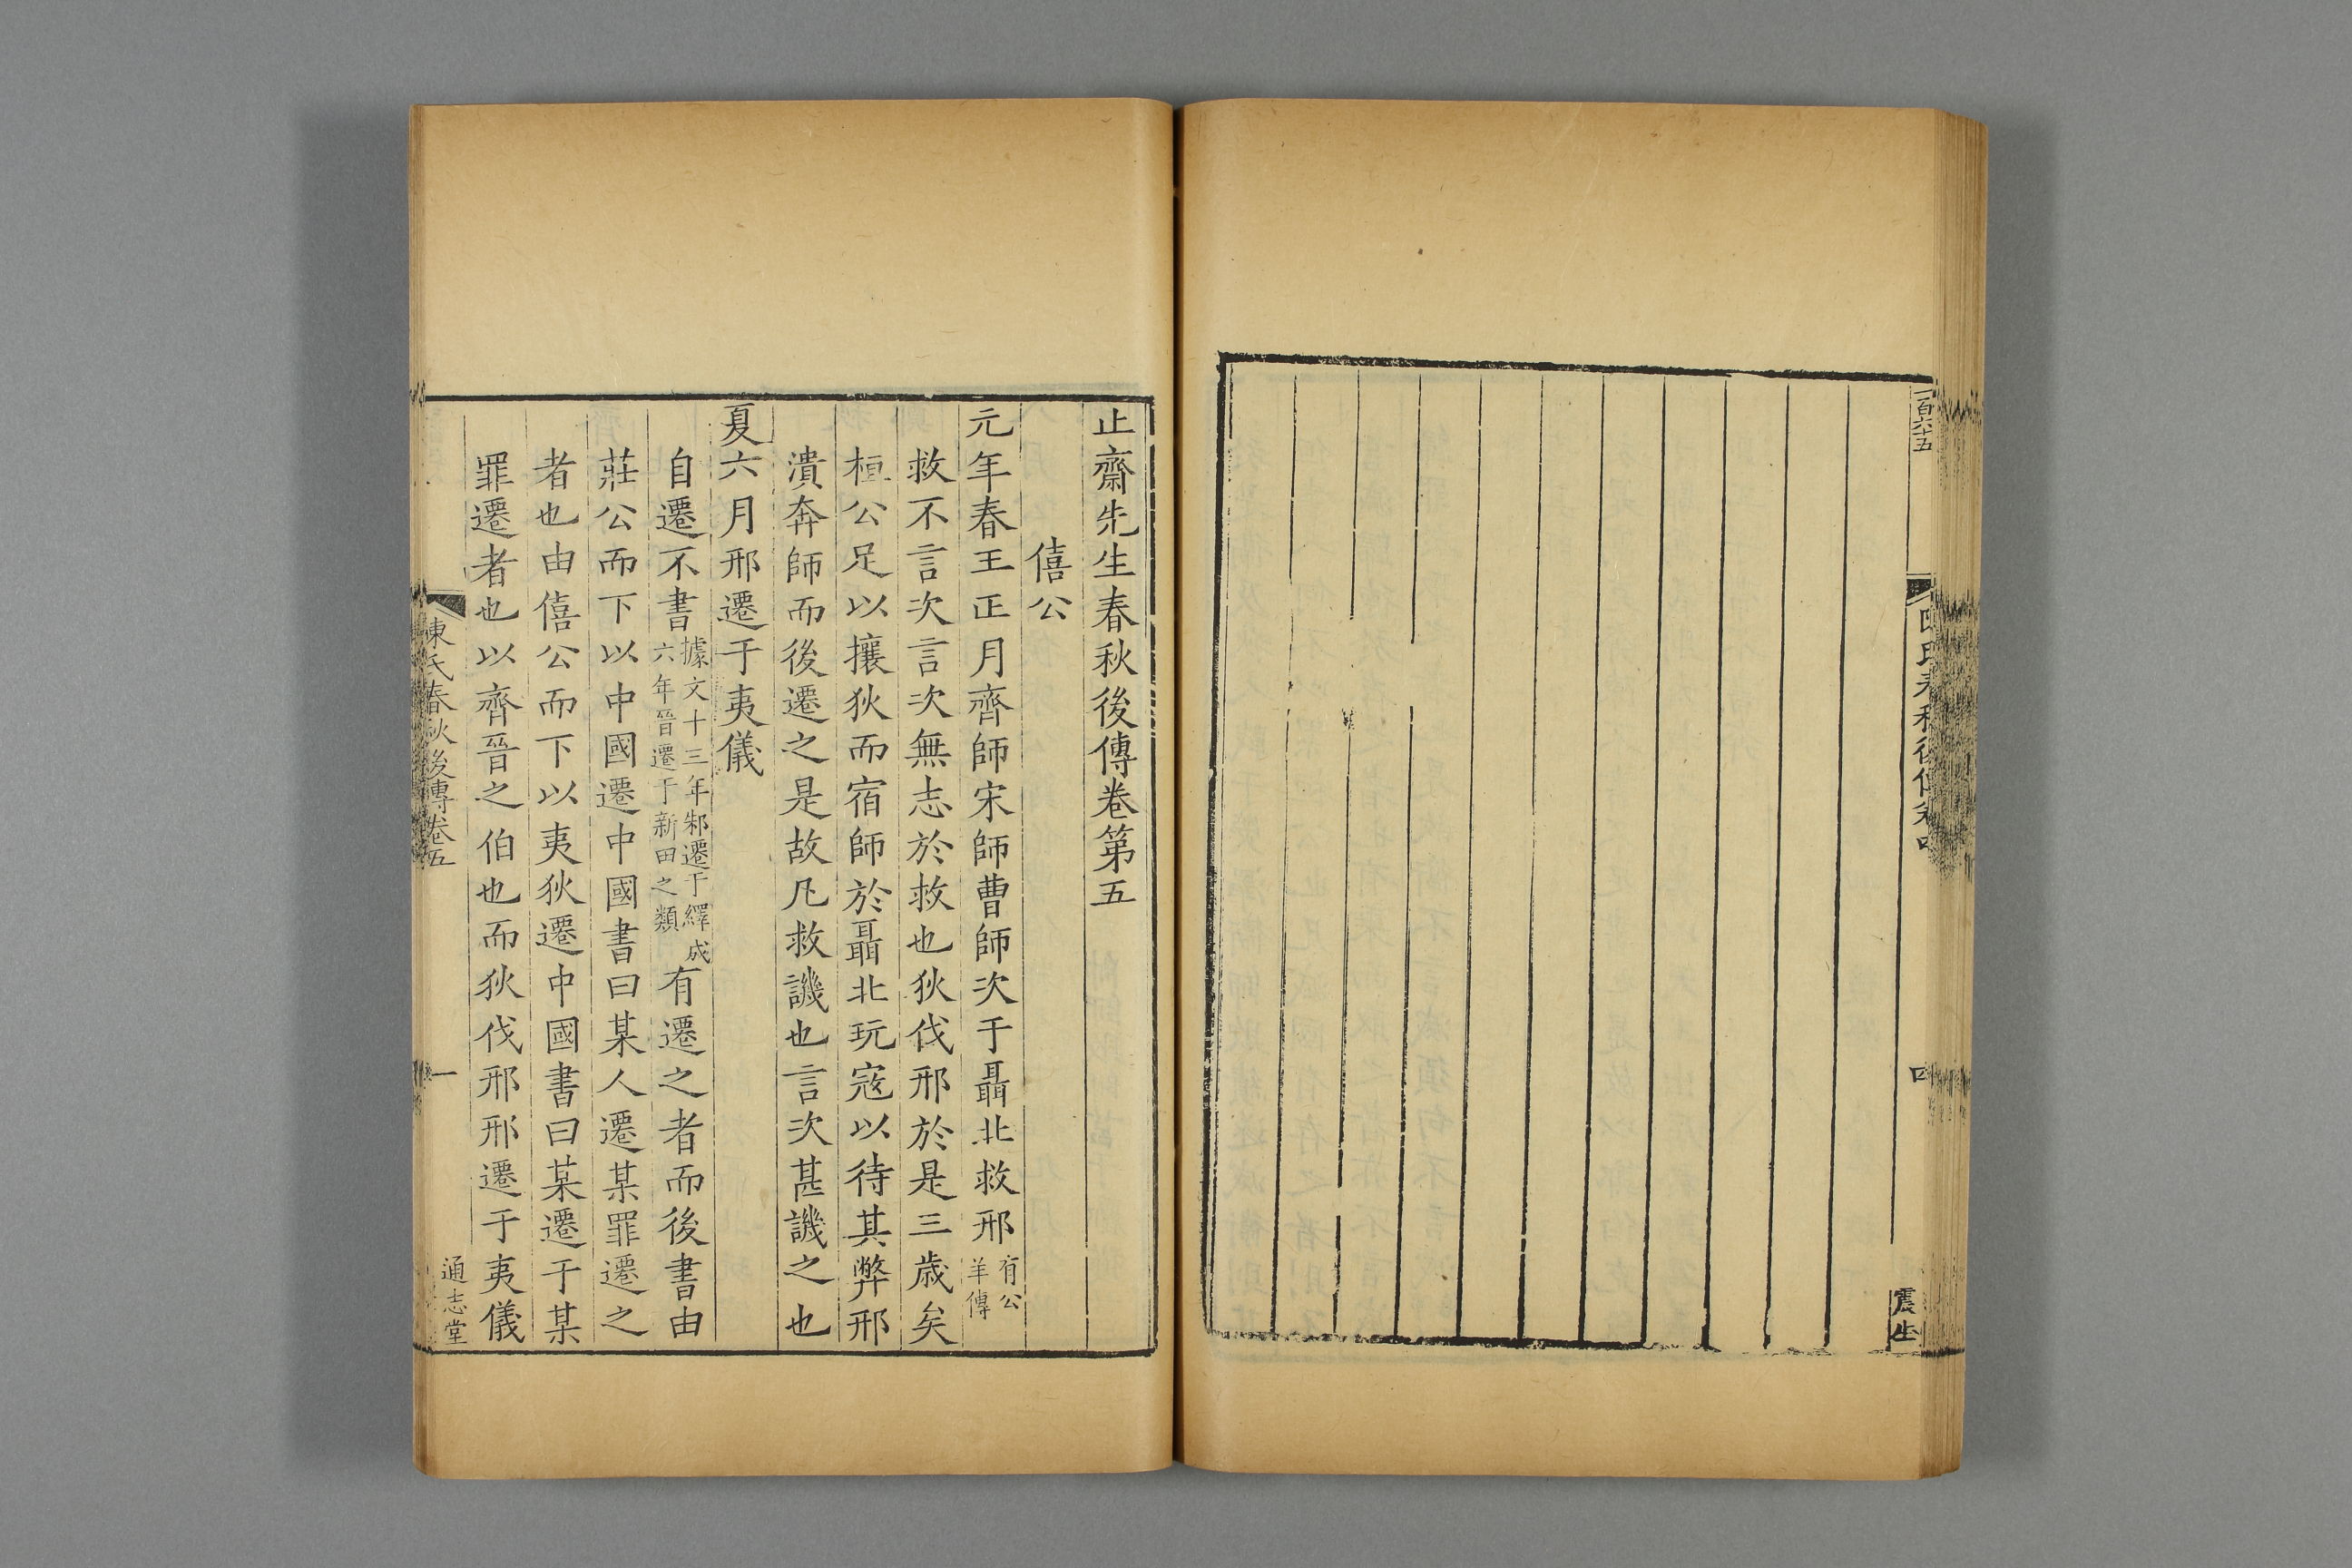 一百六十五
四
震生
止齋先生春秋後傳卷第五
僖公
元年春王正月齊師宋師曹師次于聶北救邢有公羊傳
救不言次言次無志於救也狄伐邢於是三歲矣
桓公足以攘狄而宿師於聶北玩寇以待其弊邢
潰奔師而後遷之是故凡救譏也言次甚譏之也
夏六月邢遷于夷儀
自遷不書據文十三年邾遷于繹成六年晉遷于新田之類有遷之者而後書由
莊公而下以中國遷中國書曰某人遷某罪遷之
者也由僖公而下以夷狄遷中國書曰某遷于某
罪遷者也以齊晉之伯也而狄伐邢邢遷于夷儀
陳氏春秋後傳卷五
一
通志堂